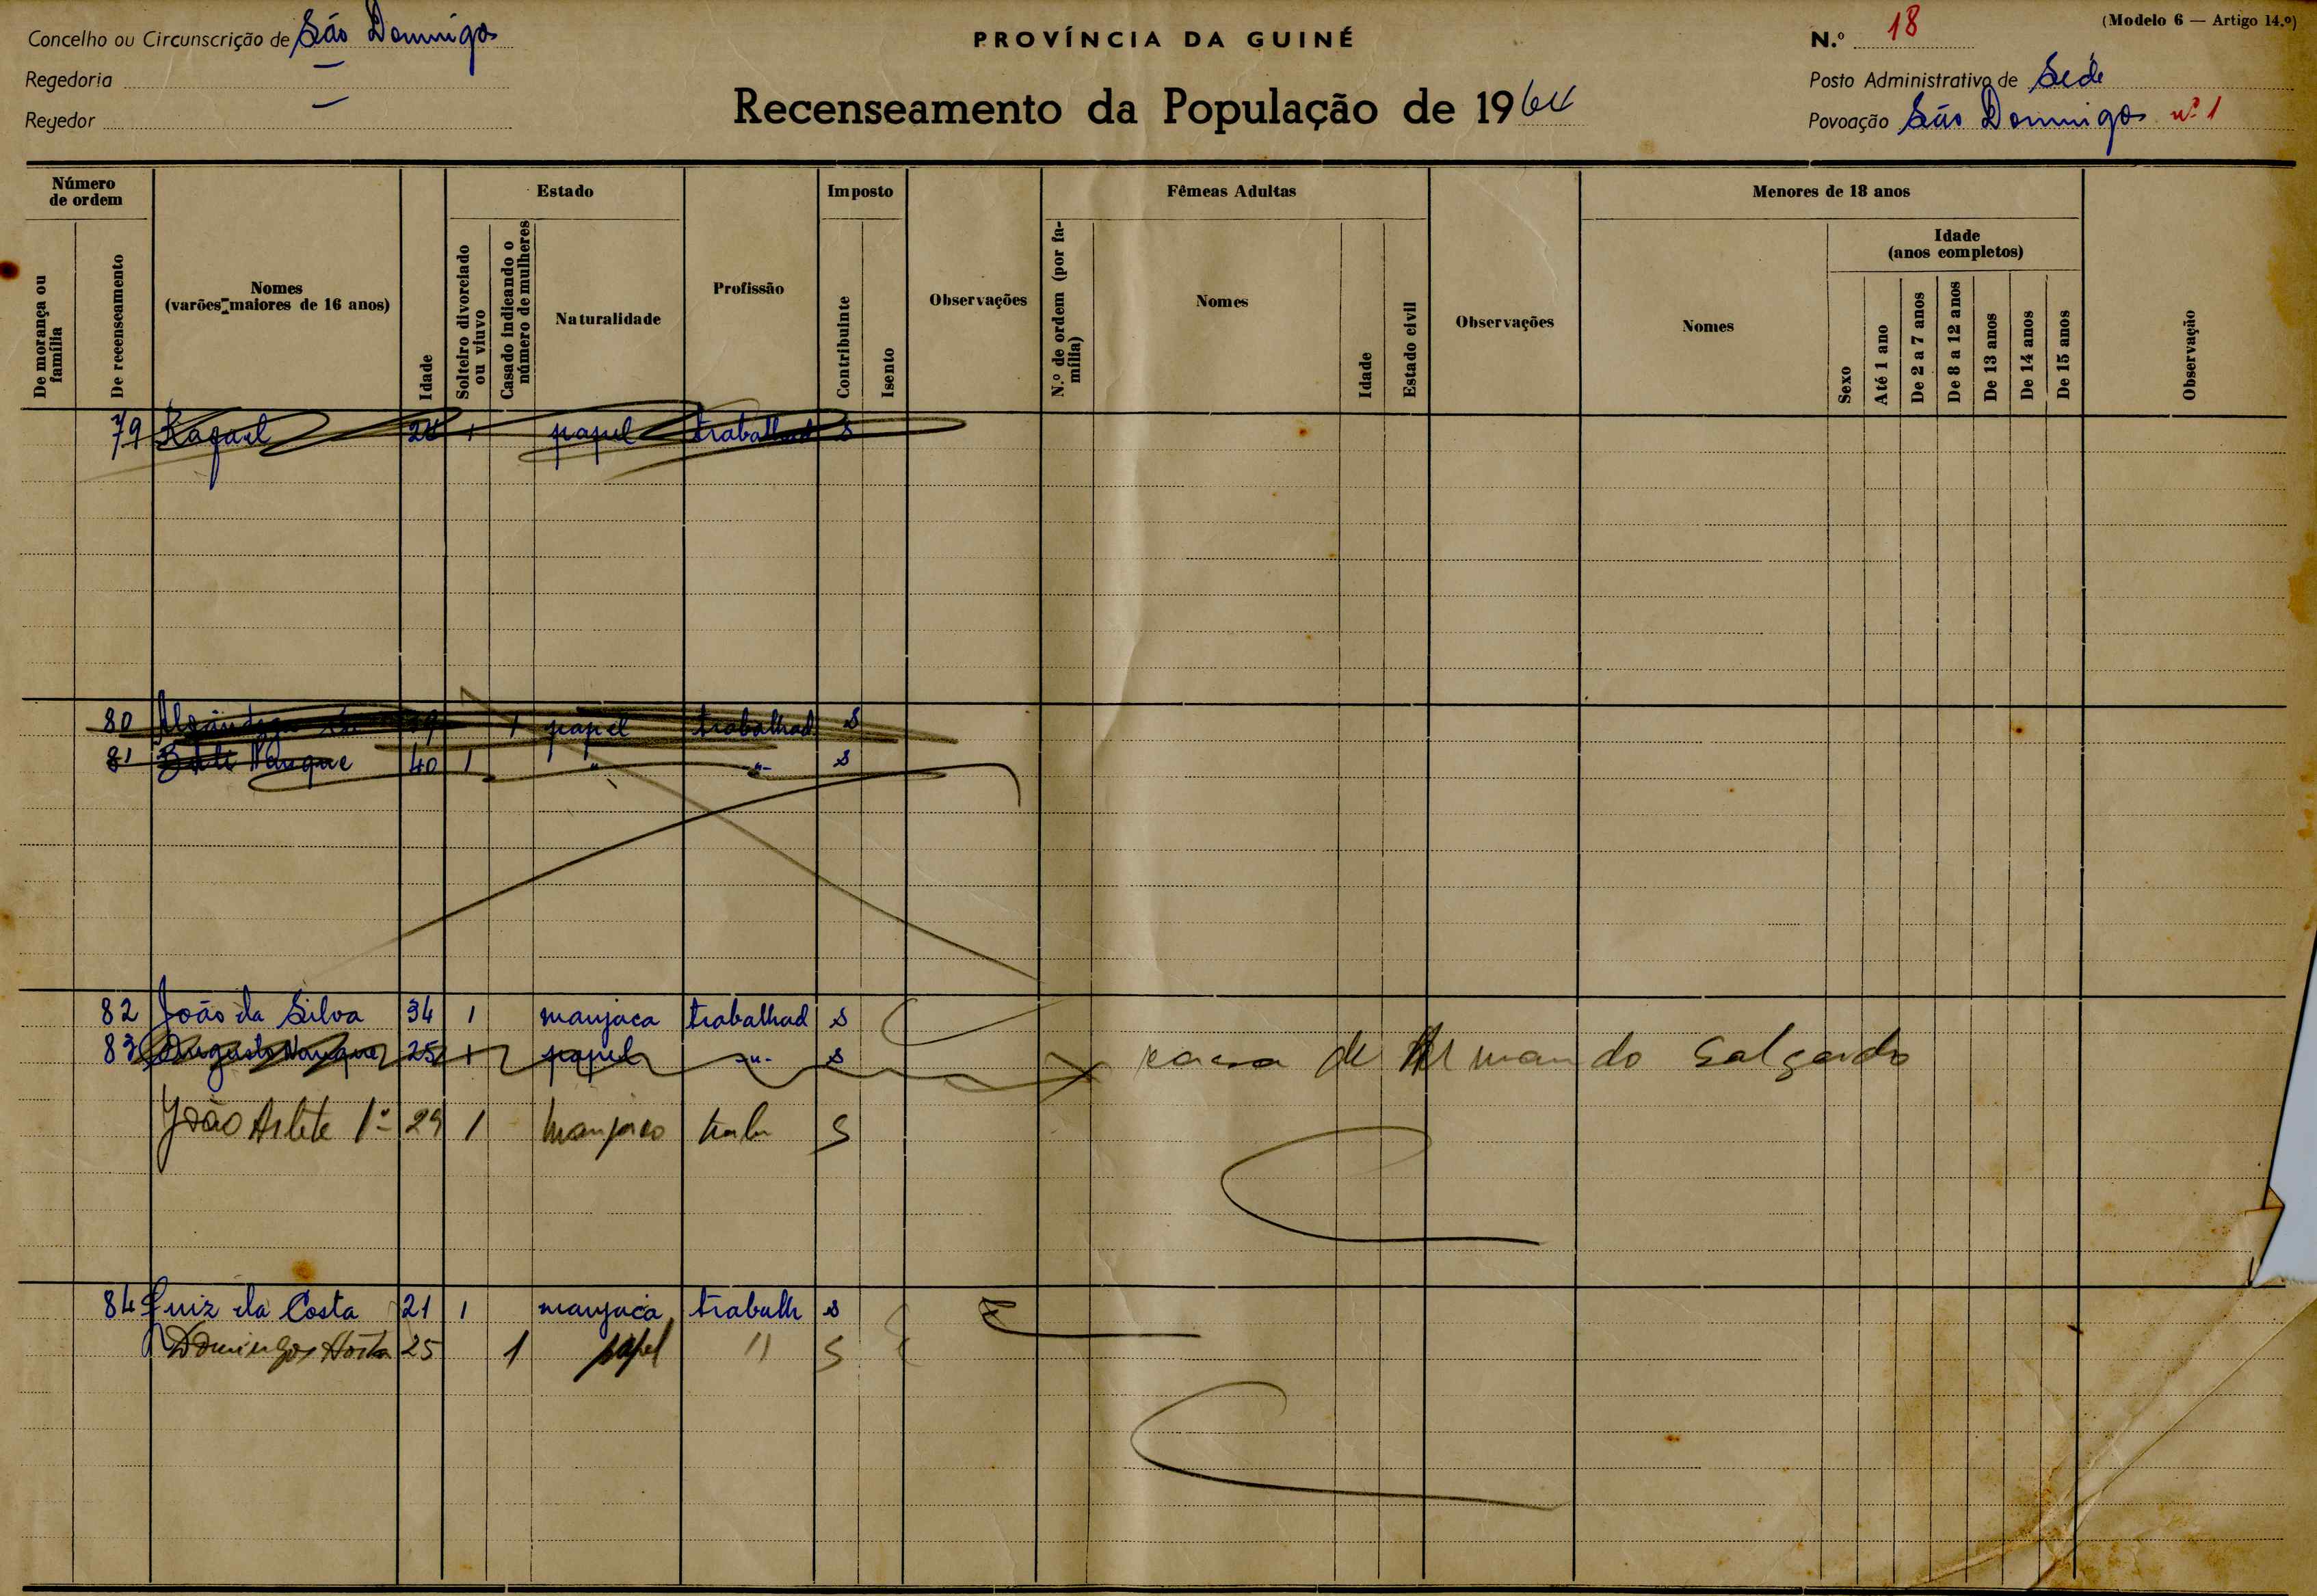 (Modelo 6 — Artigo 14.º)
Concelho ou Circunscrição de São Domingos
PROVÍNCIA DA GUINÉ
N.º 18
Regedoria —
Posto Administrativo de Sede
Recenseamento da População de 1964
Regedor —
Povoação São Domingos nº 1
Número de ordem
De morança ou família
De recenseamento
Nomes
(varões maiores de 16 anos)
Idade
Estado
Solteiro divorciado ou viuvo
Casado indicando o número de mulheres
Naturalidade
Profissão
Imposto
Contribuinte
Isento
Observações
Fêmeas Adultas
N.º de ordem (por família)
Nomes
Idade
Estado civil
Observações
Menores de 18 anos
Nomes
Sexo
Idade
(anos completos)
Até 1 ano
De 2 a 7 anos
De 8 a 12 anos
De 13 anos
De 14 anos
De 15 anos
Observação
79 Raquel 1 papel trabalhad S
80 1 papel trabalhad S
81 Nanque 40 1 " " S
82 João da Silva 34 1 manjaca trabalhad S
83 Augusto Nanque 25 1 papel " S
casa de Armando Salgado
João Arlete 1º 29 1 manjaco trab S
84 Luiz da Costa 21 1 manjaca trabalh S
Domingos 25 1 papel " S